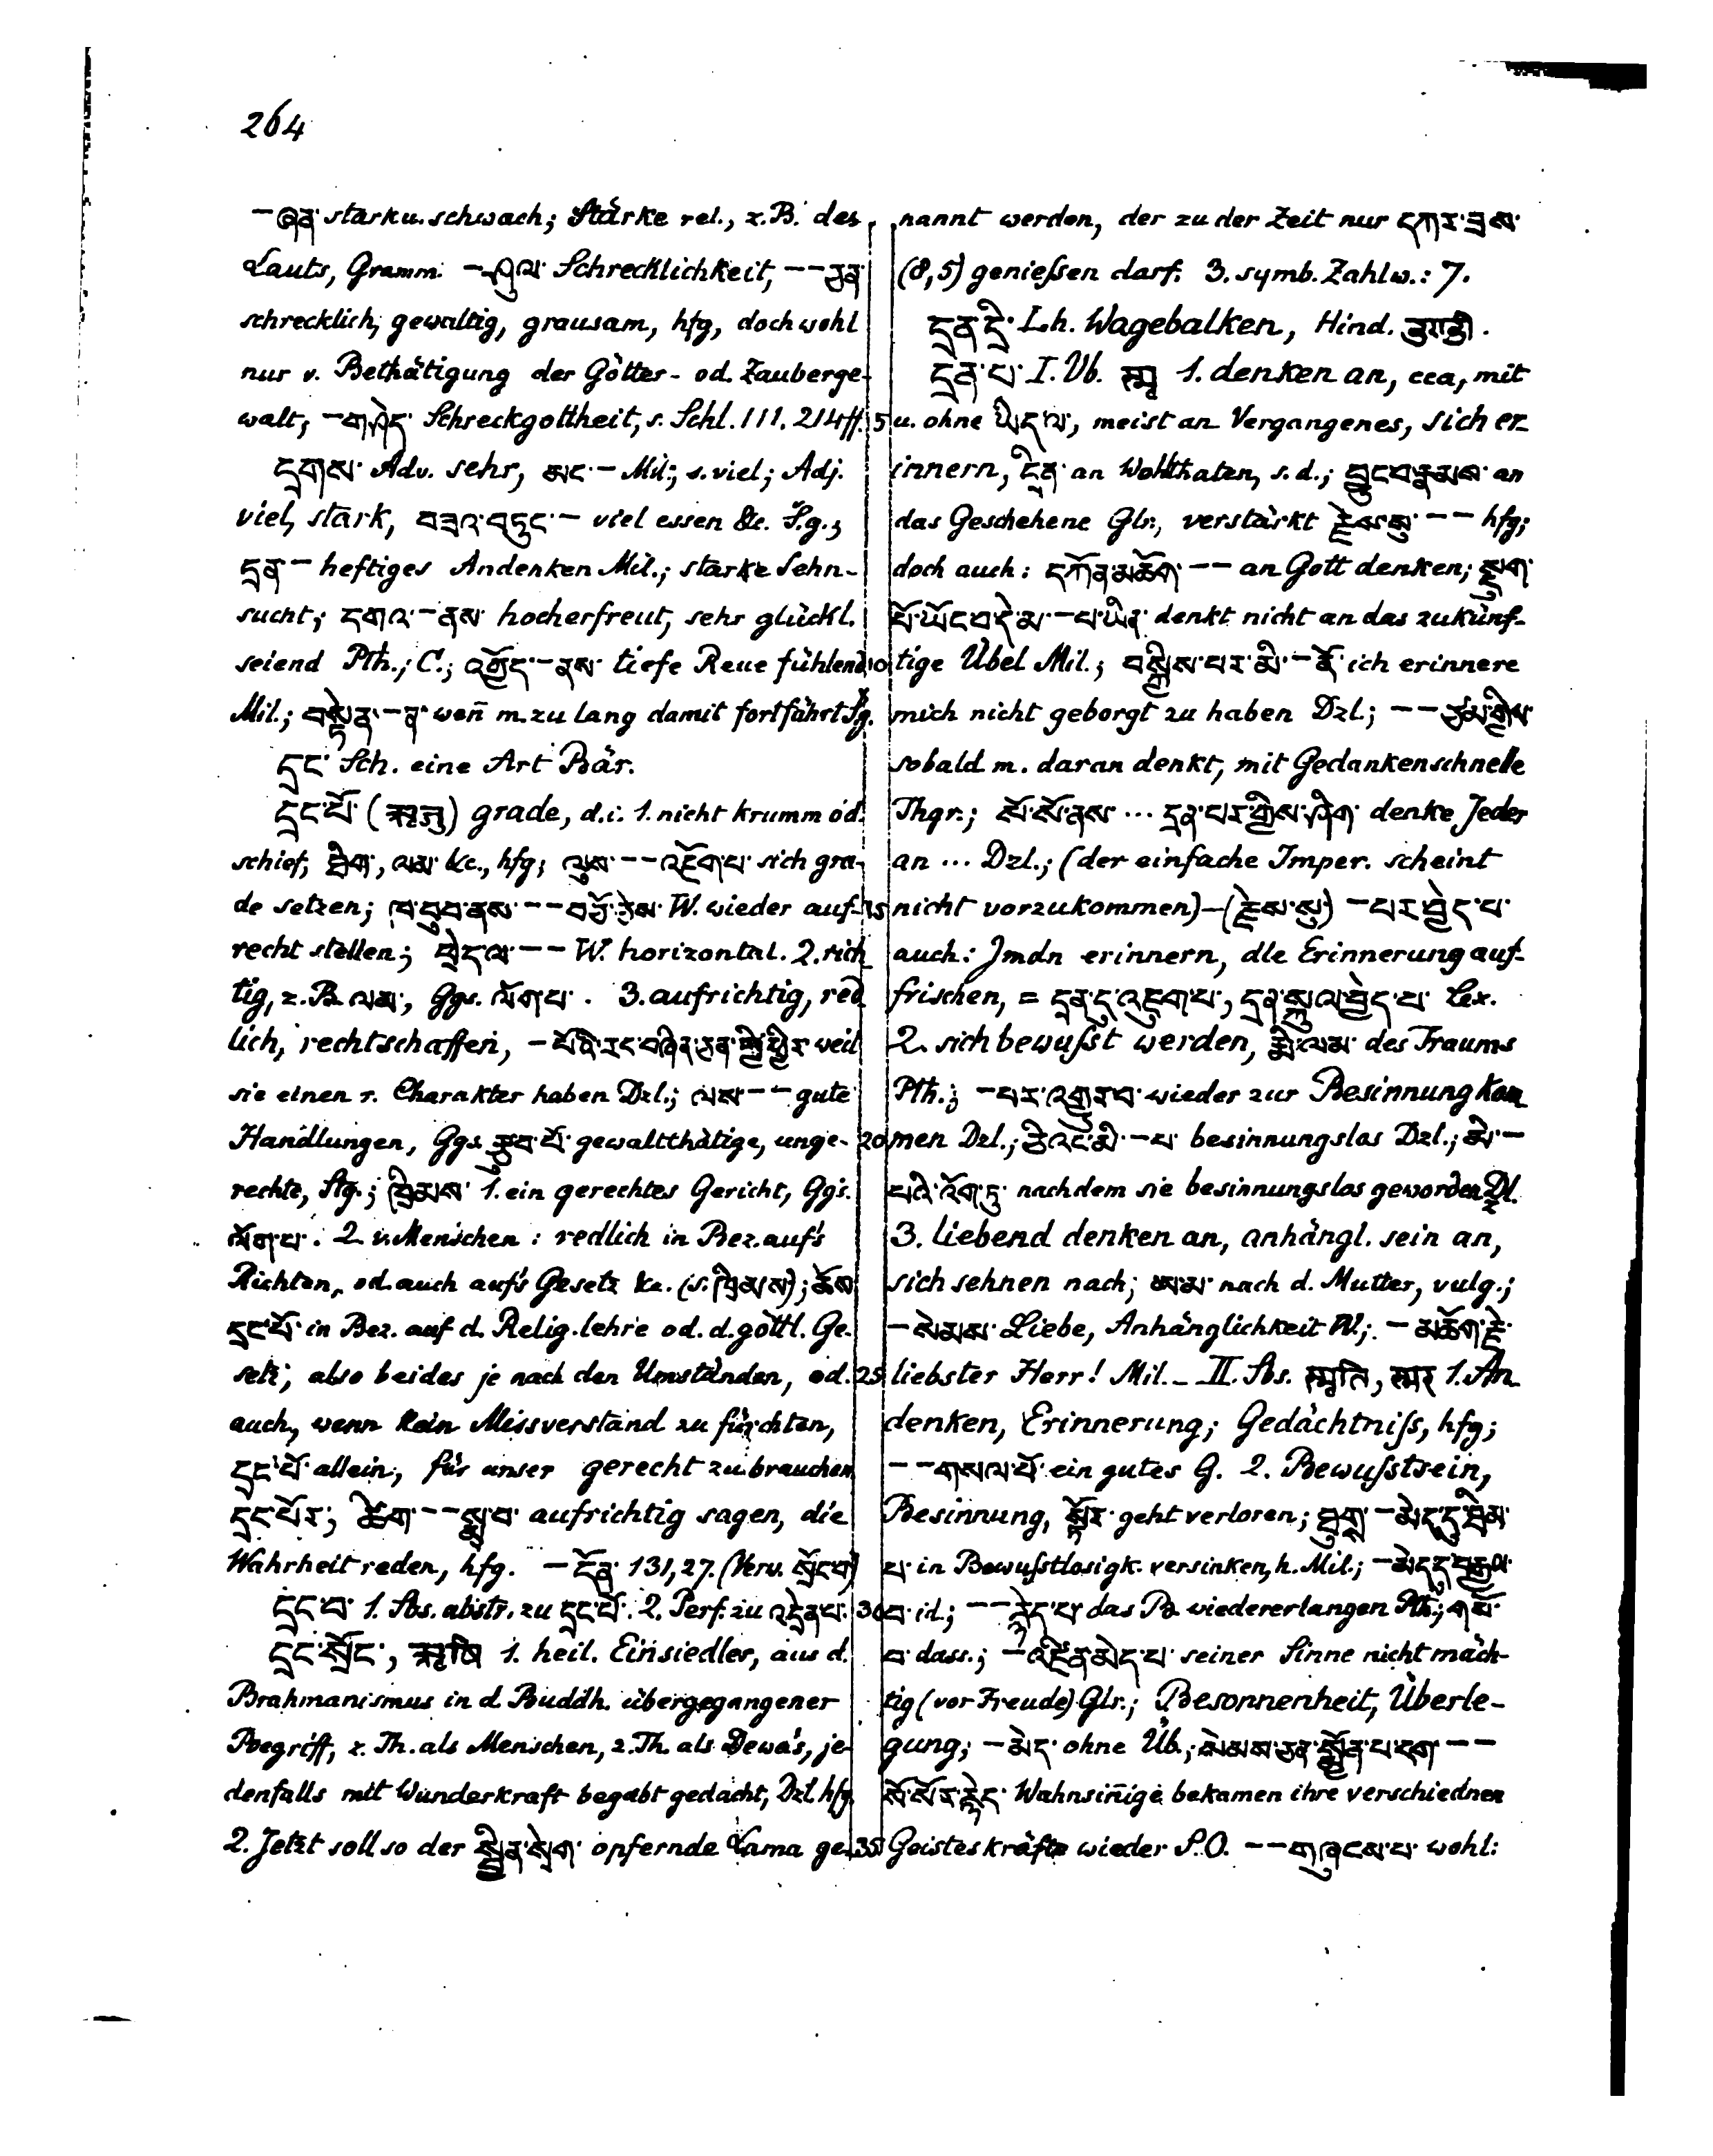 264
–ཞན་ stark u. schwach; Stärke rel., z.B. des
Lauts, Gramm. –ཤུལ་ Schrecklichkeit, ––ཅན་
schrecklich, gewaltig, grausam, hfg, doch wohl
nur v. Bethätigung der Götter- od. Zauberge-
walt; –གཤེད་ Schreckgottheit, s. Schl. 111. 214ff.
དྲགས་ Adv. sehr, མང་– Mil.; s. viel; Adj.
viel, stark, བཟའ་བཏུང་– viel essen &c. S.g.;
དྲན– heftiges Andenken Mil.; starke Sehn-
sucht; དགའ་–ནས་ hocherfreut, sehr glückl.
seiend Pth.; C.; འགྱོད་–ནས་ tiefe Reue fühlend
Mil.; བསྟེན་–ན་ weñ m. zu lang damit fortfährt S.g.
དྲང་ Sch. eine Art Bär.
དྲང་པོ་ (ऋजु) grade, d.i. 1. nicht krumm od.
schief, ཐིག་, ལམ་ &c., hfg; ལུས་––འཇོག་པ་ sich gra-
de setzen; ཁ་བུབ་ནས་––བཅོ་ཅེས་ W. wieder auf-
recht stellen; ཕྲེད་ལ་–– W. horizontal. 2. rich
tig, z.B. ལམ་, Ggs. ལོག་པ་. 3. aufrichtig, red
lich, rechtschaffen, –པོའི་རང་བཞིན་ཅན་གྱི་ཕྱིར་ weil
sie einen r. Charakter haben Dzl.; ལས་–– gute
Handlungen, Ggs. རྩུབ་པོ་ gewaltthätige, unge-
rechte, Stg.; ཁྲིམས་ 1. ein gerechtes Gericht, Ggs.
ལོག་པ་. 2. v. Menschen: redlich in Bez. auf's
Richten, od. auch auf's Gesetz &c. (s. ཁྲིམས་); ཆོས་
དྲང་པོ་ in Bez. auf d. Relig.lehre od. d. göttl. Ge-
setz; also beides je nach den Umständen, od.
auch, wenn kein Missverstand zu fürchten,
དྲང་པོ་ allein, für unser gerecht zu brauchen
དྲང་པོར་; ཚིག་––སྨྲ་བ་ aufrichtig sagen, die
Wahrheit reden, hfg. –དོན་ 131,27. (Verv. སྲོང་བ་)
དྲང་བ་ 1. Sbs. abstr. zu དྲང་པོ་. 2. Perf. zu འདྲེན་པ་.
དྲང་སྲོང་, ऋषि 1. heil. Einsiedler, aus d.
Brahmanismus in d. Buddh. übergegangener
Begriff, z. Th. als Menschen, z. Th. als Dewa's, je-
denfalls mit Wunderkraft begabt gedacht, Dzl. hfg.
2. Jetzt soll so der སྦྱིན་སྲེག་ opfernde Lama ge-
nannt werden, der zu der Zeit nur དཀར་ཟས་
(8,5) genießen darf. 3. symb. Zahlw.: 7.
དྲན་དྲི་ Lh. Wagebalken, Hind.
དྲན་པ་ I. Vb. स्मृ 1. denken an, cca, mit
5 u. ohne ཡིད་ལ་, meist an Vergangenes, sich er-
innern, དྲིན་ an Wohlthaten, s. d.; བྱུང་བ་རྣམས་ an
das Geschehene Glr., verstärkt རྗེས་སུ་–– hfg;
doch auch: དཀོན་མཆོག་–– an Gott denken; སྡུག་
པོ་ཡོང་བ་དེ་མ་–པ་ཡིན་ denkt nicht an das zukünf-
10 tige Übel Mil.; བསྐྱིས་པར་མི་–ནོ་ ich erinnere
mich nicht geborgt zu haben Dzl.; ––ཙམ་གྱིས་
sobald m. daran denkt, mit Gedankenschnelle
Thgr.; སོ་སོ་ནས་ ... དྲན་པར་གྱིས་ཤིག་ denke Jeder
an ... Dzl.; (der einfache Imper. scheint
15 nicht vorzukommen)–(རྗེས་སུ་) –པར་བྱེད་པ་
auch: Jmdn erinnern, die Erinnerung auf-
frischen, = དྲན་དུ་འཇུག་པ་, དྲན་སྐུལ་བྱེད་པ་ Lex.
2. sich bewußt werden, རྨི་ལམ་ des Traums
Pth.; –པར་འགྱུར་བ་ wieder zur Besinnung kom
20 men Dzl.; ཅི་འང་མི་–པ་ besinnungslos Dzl.; མི་–
པའི་འོག་ཏུ་ nachdem sie besinnungslos geworden Dzl.
3. liebend denken an, anhängl. sein an,
sich sehnen nach; ཨམ་ nach d. Mutter, vulg.;
–སེམས་ Liebe, Anhänglichkeit W.; –མཆོག་རྗེ་
25 liebster Herr! Mil.– II. Sbs. स्मृति, स्मर 1. An
denken, Erinnerung; Gedächtniß, hfg;
––གསལ་པོ་ ein gutes G. 2. Bewußtsein,
Besinnung, སྟོར་ geht verloren; ཐུགས་–མེད་དུ་བྲིམ་
པ་ in Bewußtlosigk. versinken, h. Mil.; –མེད་དུ་བརྒྱལ་
30 བ་ id.; ––རྙེད་པ་ das B. wiedererlangen Pth.; གསོ་
བ་ dass.; –འཛིན་མེད་པ་ seiner Sinne nicht mäch-
tig (vor Freude) Glr.; Besonnenheit, Überle-
gung; –མེད་ ohne Üb.; སེམས་ཅན་སྨྱོན་པ་དག་––
སོ་སོར་རྙེད་ Wahnsiñige bekamen ihre verschiednen
35 Geisteskräfte wieder S.O. ––གཞུངས་པ་ wohl: